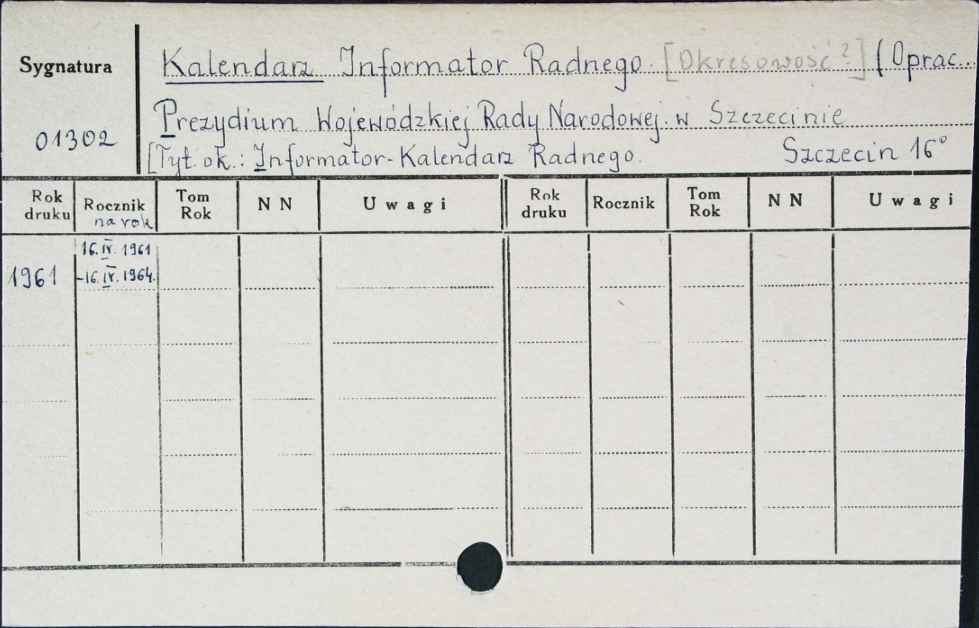 Sygnatura
01302
Kalendarz Informator Radnego. [Okresowość?] (Oprac...
Prezydium Wojewódzkiej Rady Narodowej. w Szczecinie
[Tyt ok.: Informator-Kalendarz Radnego. Szczecin 16°
Rok druku Rocznik na rok Tom Rok N N Uwagi Rok druku Rocznik Tom Rok N N Uwagi
1961 16.IV. 1961 -16.IV. 1964.